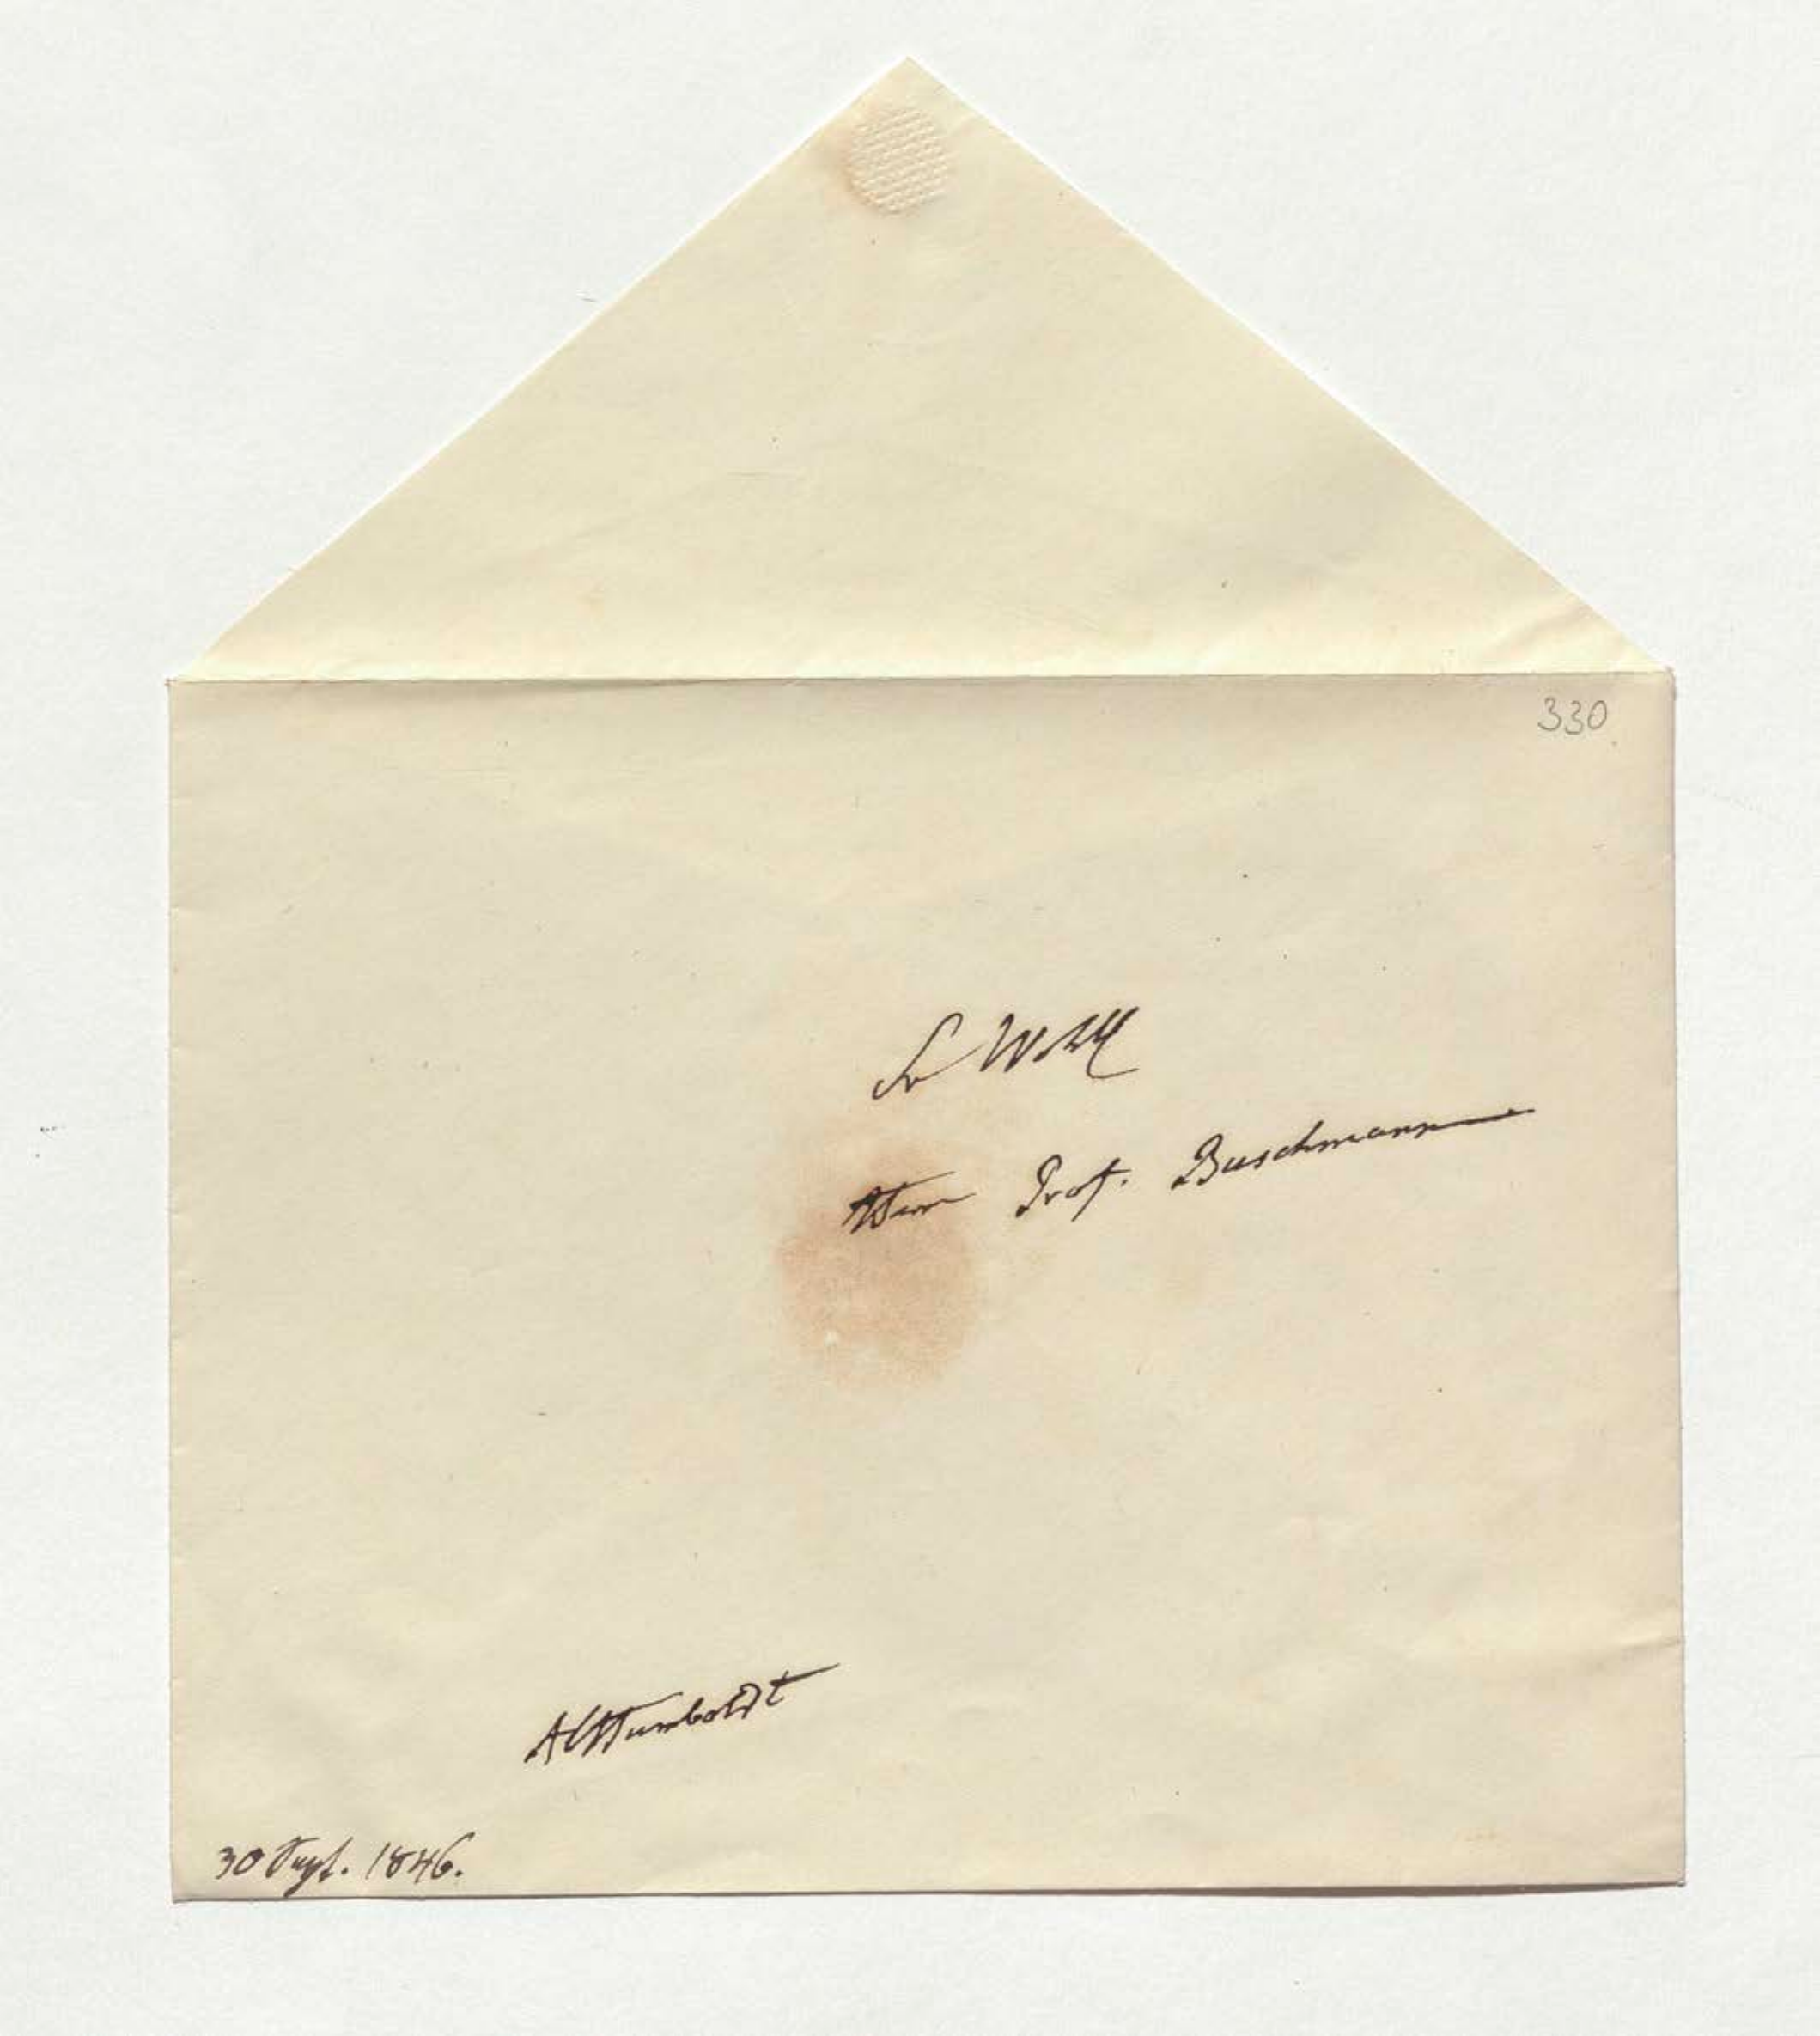 330
Sr Wohl
Herrn Prof. Buschmann
AlHumboldt
30 Sept. 1846.